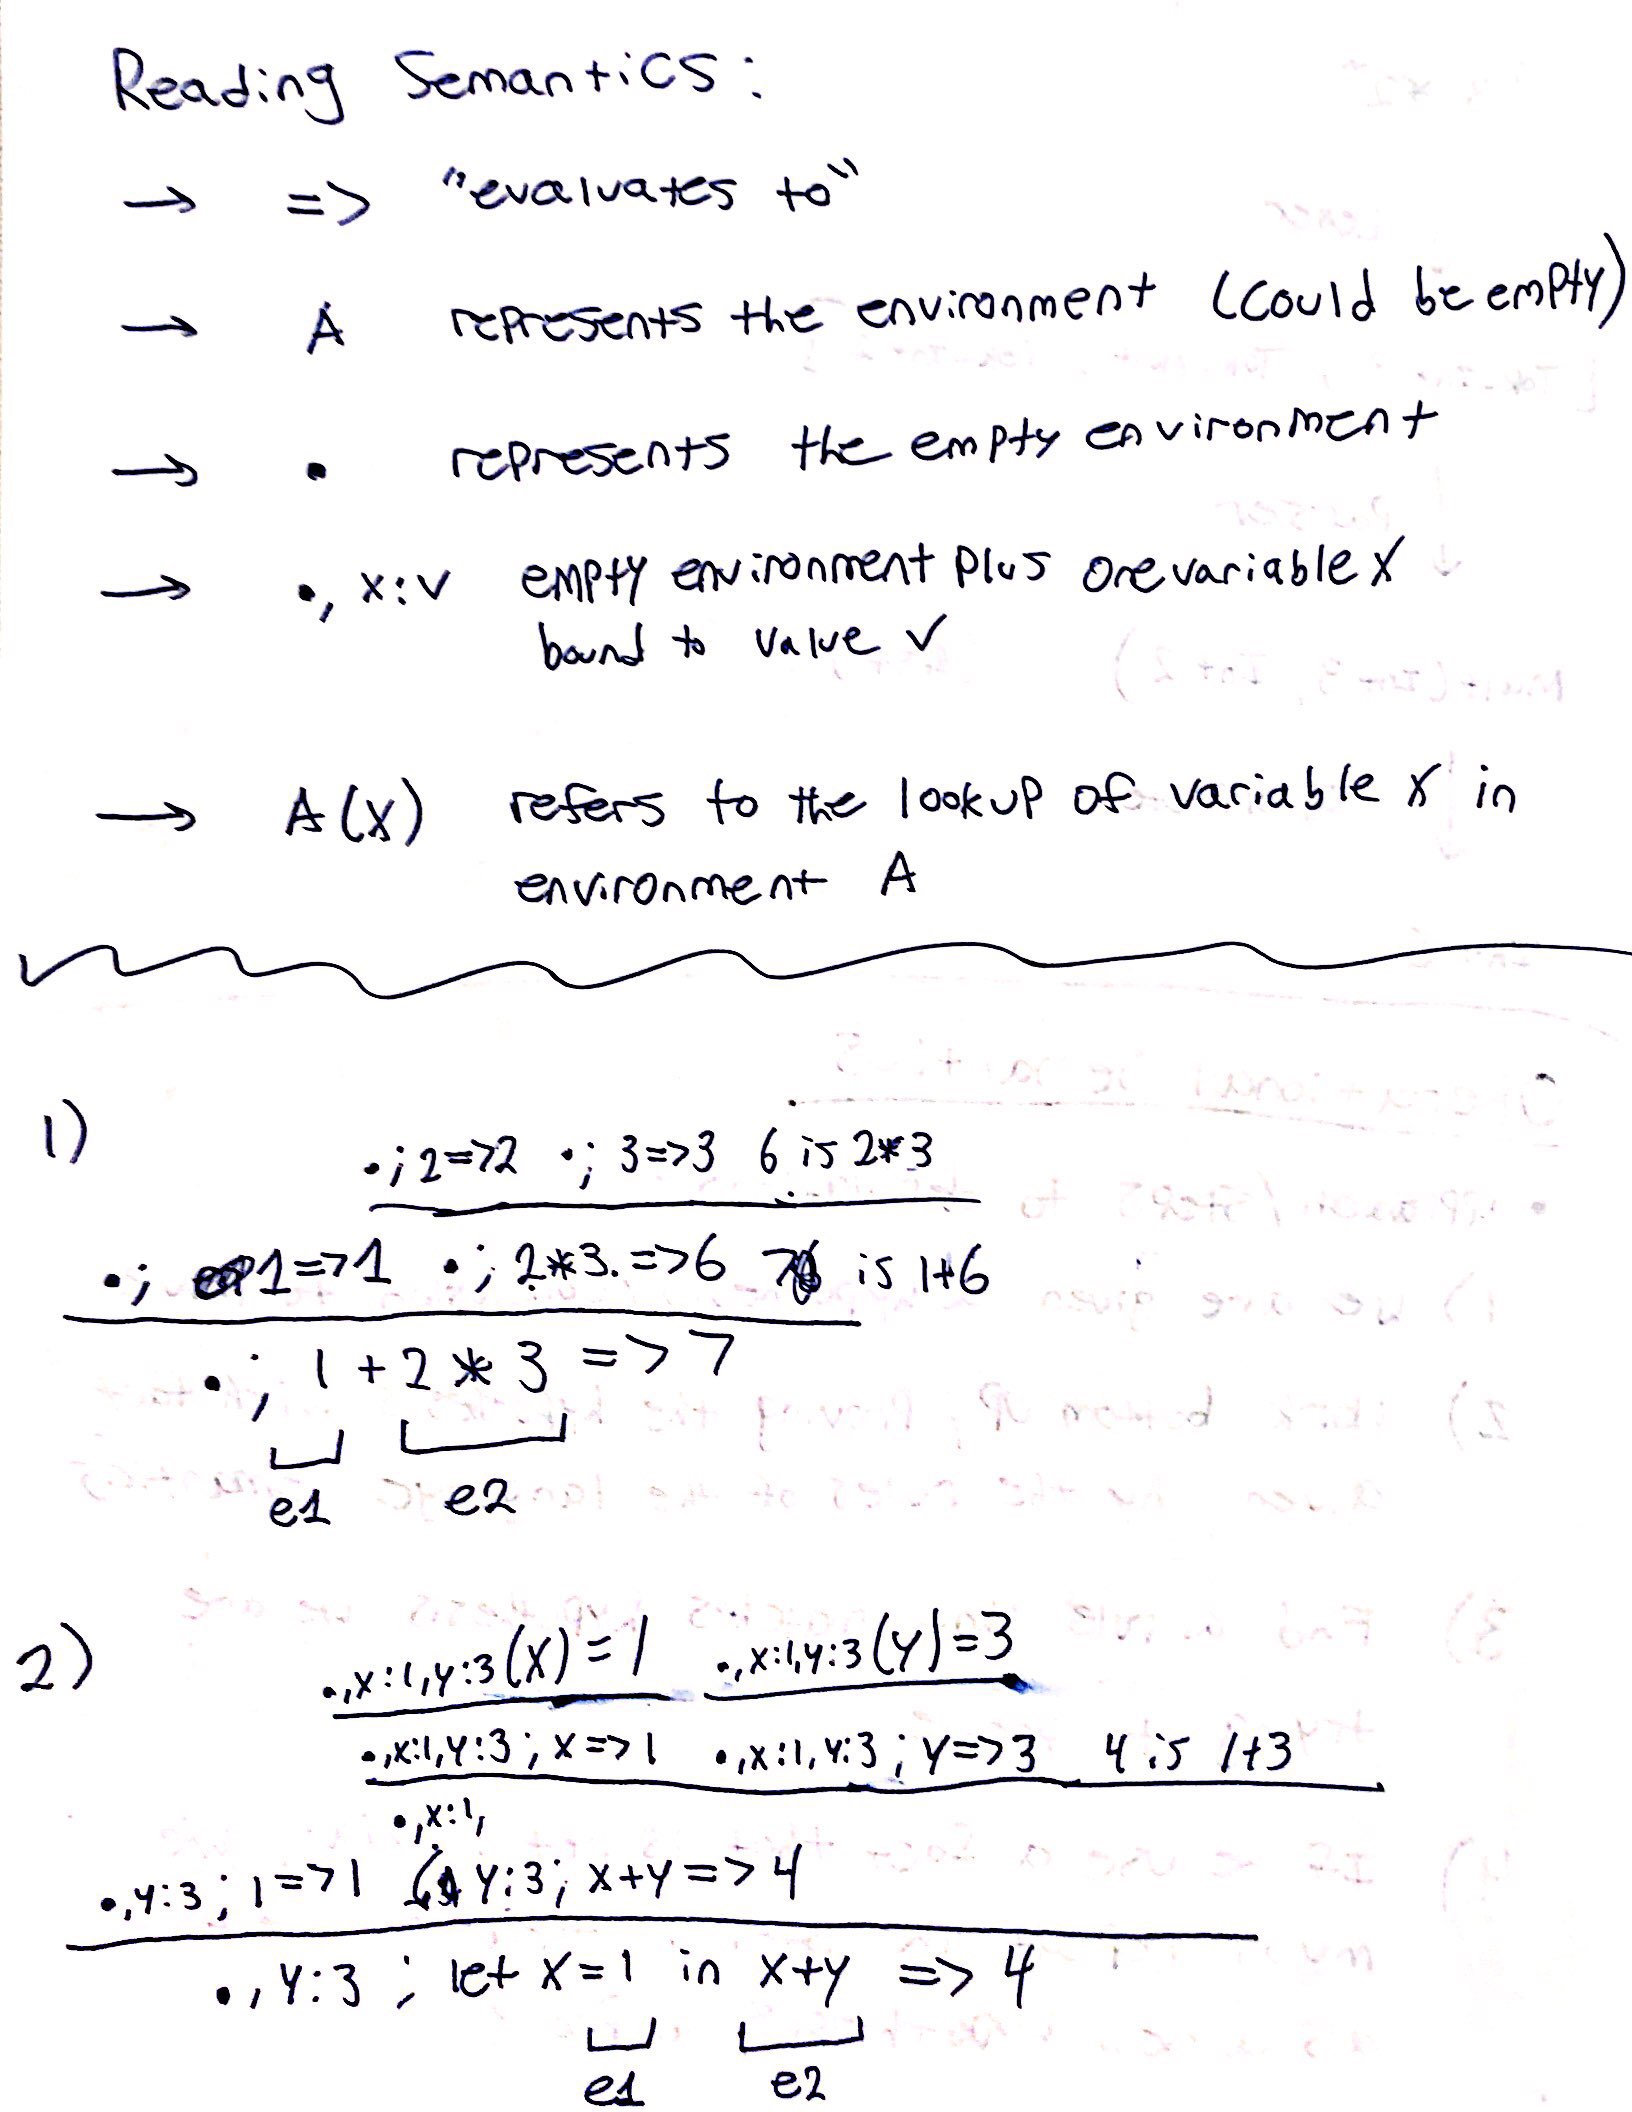 Reading Semantics:
→ => "evaluates to"
→ A represents the environment (could be empty)
→ • represents the empty environment
→ •, x:v empty environment plus one variable x
bound to value v
→ A(x) refers to the lookup of variable x in
environment A
1)
•; 2=>2 •; 3=>3 6 is 2*3
•; 1=>1 •; 2*3 =>6 7 is 1+6
•; 1 + 2 * 3 => 7
e1 e2
2)
•,x:1,y:3(x)=1 •,x:1,y:3(y)=3
•,x:1,y:3; x=>1 •,x:1,y:3; y=>3 4 is 1+3
•,x:1,
•,y:3; 1=>1 y:3; x+y=>4
•,y:3; let x=1 in x+y => 4
e1 e2